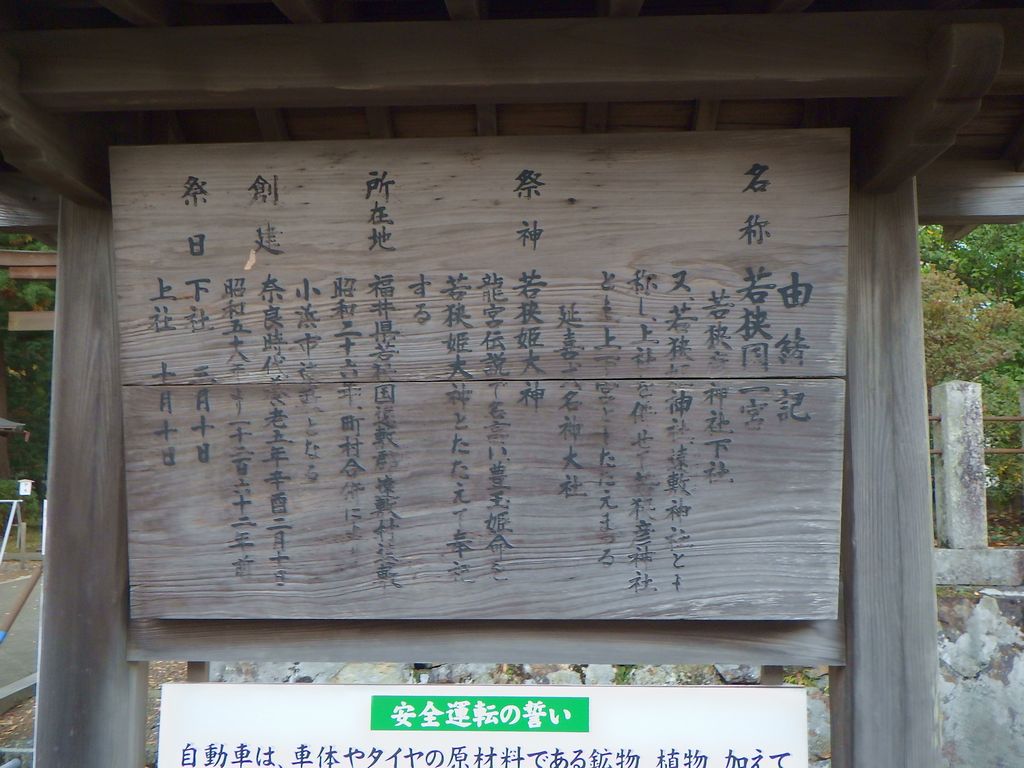 由緒記
名称 若狭国一宮
若狭彦神社下社
又、若狭姫神社、遠敷神社とも
称し、上社を併せて若狭彦神社
とも上下宮ともたたえまつる
延喜式名神大社
祭神 若狭姫大神
龍宮伝説で名高い豊玉姫命を
若狭姫大神とたたえて奉祀
する
所在地 福井県若狭国遠敷郡遠敷村遠敷
昭和二十六年、町村合併により
小浜市遠敷となる
創建 奈良時代養老五年辛酉二月十日
昭和五十八年より一千二百六十二年前
祭日 下社 三月十日
上社 十月十日
安全運転の誓い
自動車は、車体やタイヤの原材料である鉱物、植物、加えて